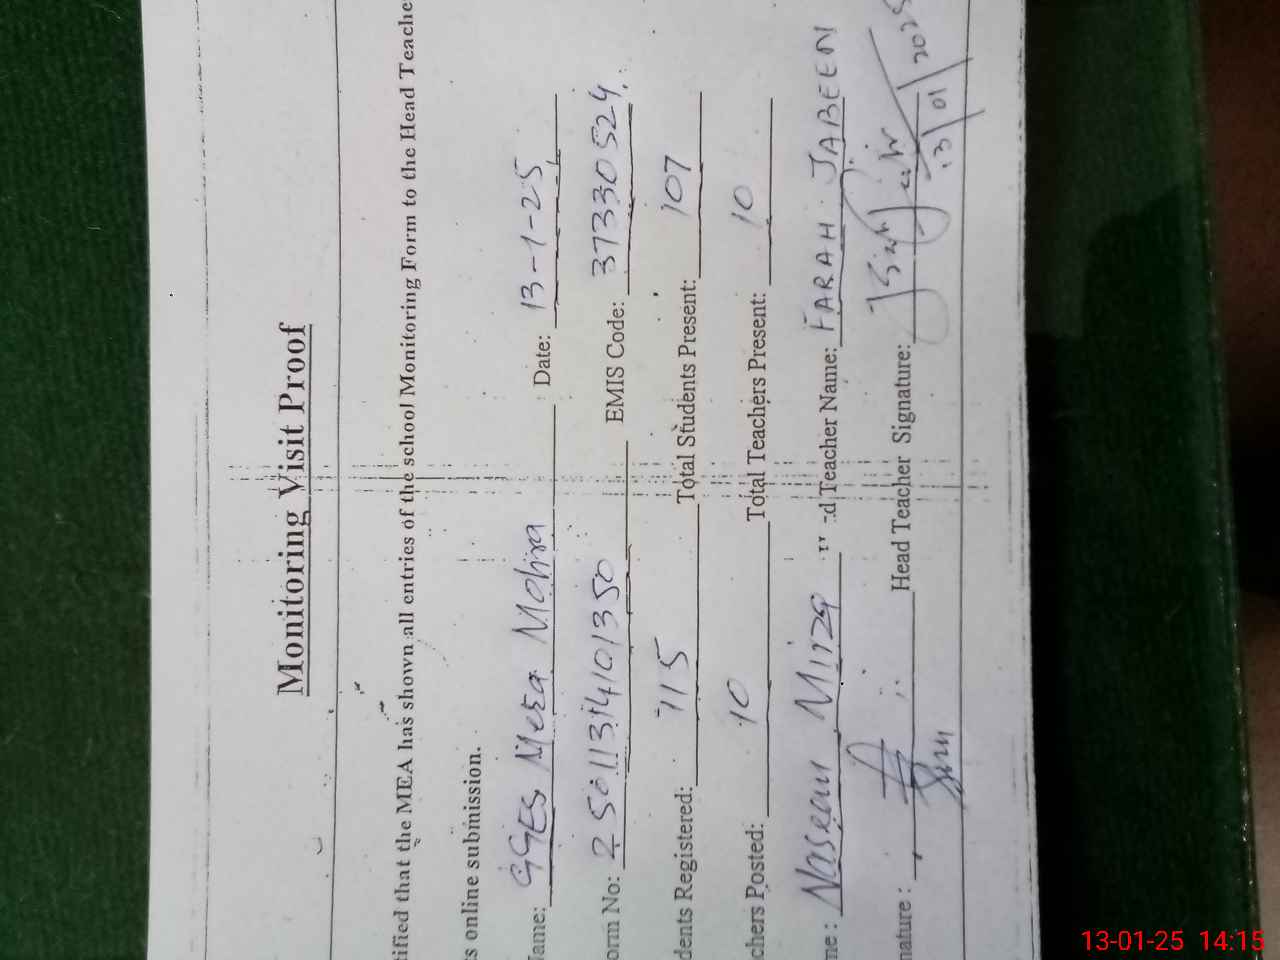 Monitoring Visit Proof
tified that the MEA has shown all entries of the school Monitoring Form to the Head Teache
s online submission.
Name: GGES Mera Mohra Date: 13-1-25
orm No: 2501131401350 EMIS Code: 37330524
dents Registered: 115 Total Students Present: 107
chers Posted: 10 Total Teachers Present: 10
me: Naseem Mirza d Teacher Name: FARAH JABEEN
nature: Head Teacher Signature:
13/01/2025
13-01-25 14:15